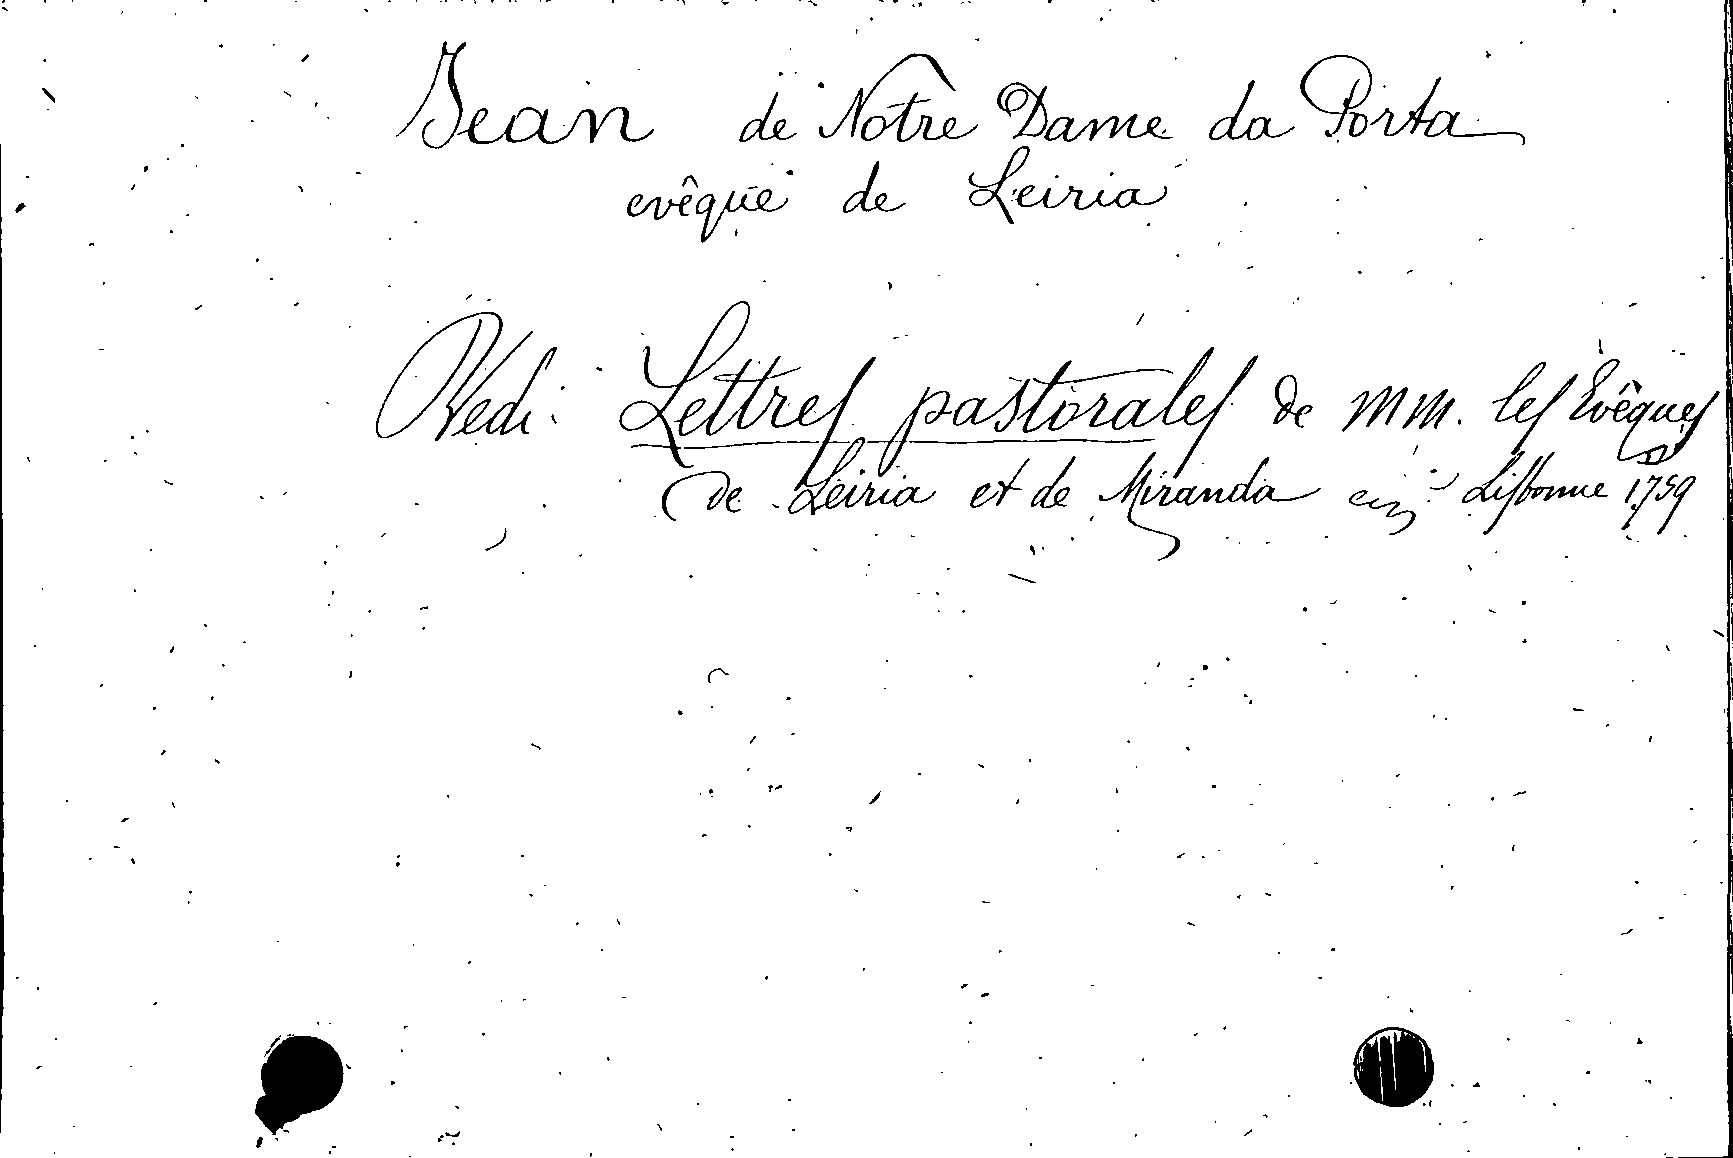 Jean de Notre Dame da Porta
evêque de Leiria
Vedi: Lettres pastorales de MM. les Evêques
de Leiria et de Miranda Lisbonne 1759